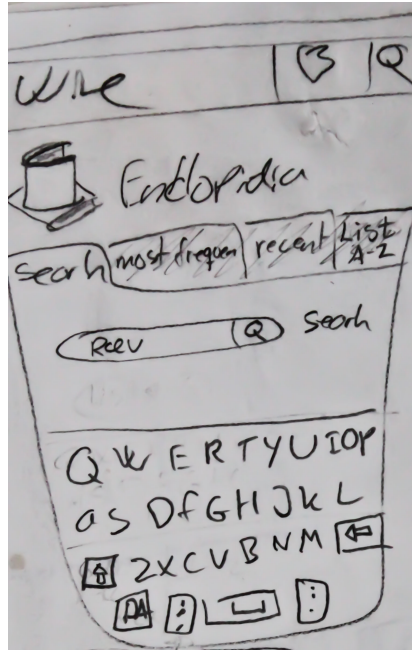 Wine Q
Enclopidia
Search most frequen recent List A-Z
Reeu Q Search
Q W E R T Y U I O P
a S D f G H J k L
Z X C V B N M